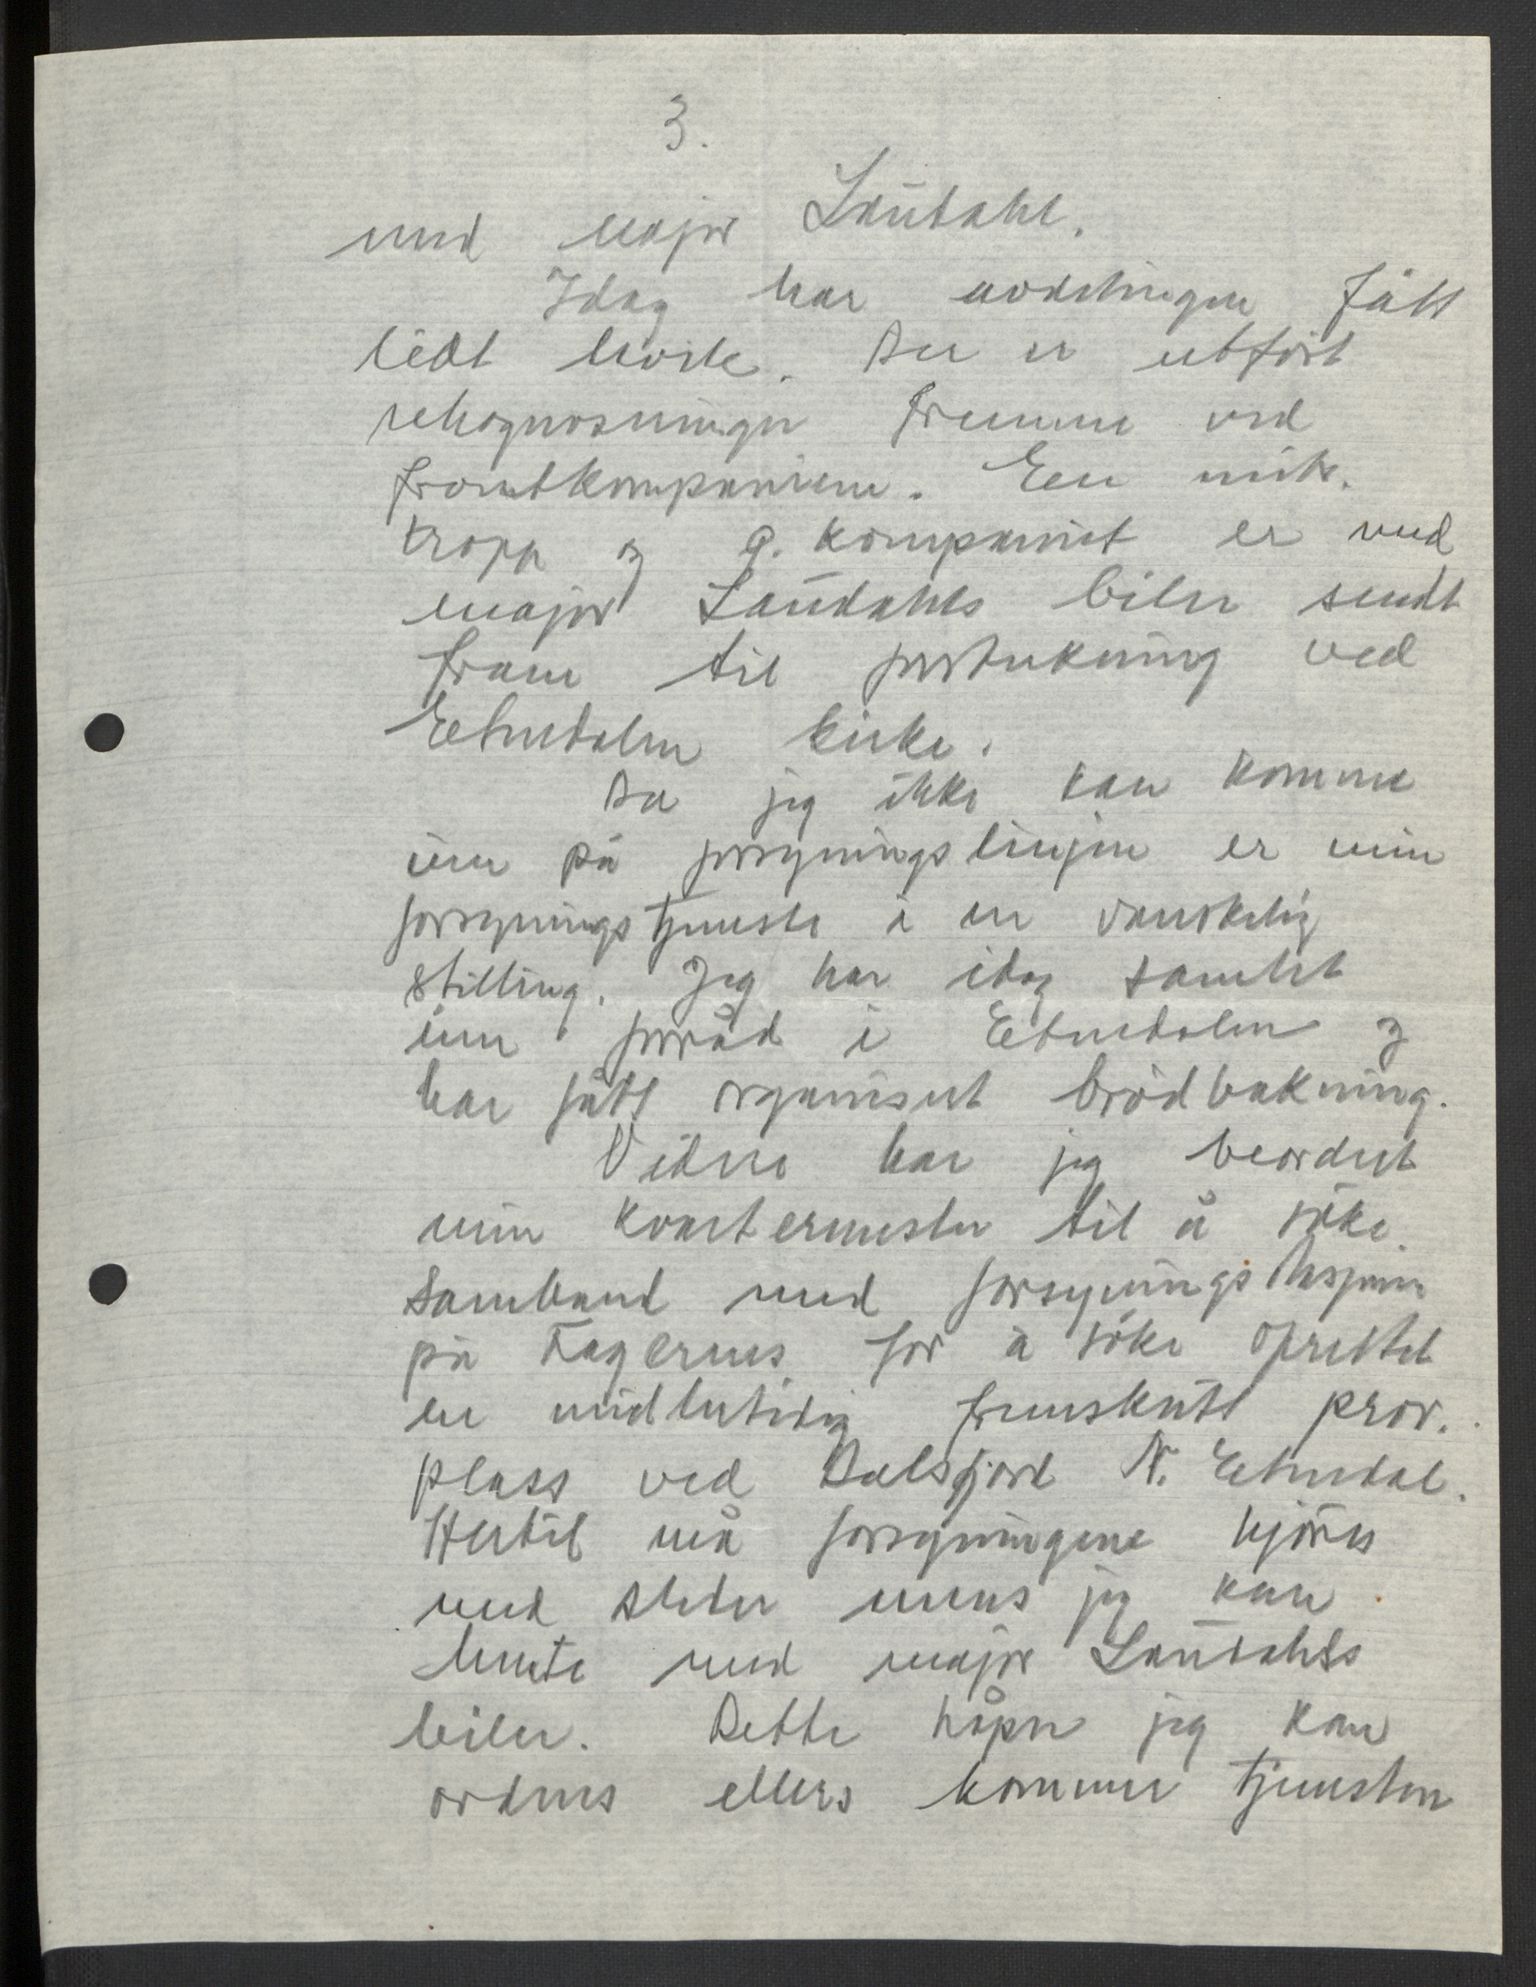 3.
med major Laudahl.
Idag har avdelingen fått
litt hvile. Der er utført
rekognoseringer fremme ved
frontkompaniene. Een mitr.
tropp og 9. kompaniet er med
major Laudahls biler sendt
fram til forsterkning ved
Etnedalen kirke.
Da jeg ikke kan komme
inn på forsyningslinjen er min
forsyningstjeneste i en vanskelig
stilling. Jeg har idag samlet
inn forråd i Etnedalen og
har fått organisert brödbakning.
Videre har jeg beordret
min kvartermester til å söke
samband med forsynings
på Fagernes for å söke oprettet
en midlertidig fremskutt prov.
plass ved Dalsfjord N. Etnedal.
Hertil må forsyningene kjöres
med sleder mens jeg kan
hente med major Laudahls
biler. Dette håper jeg kan
ordnes ellers kommer tjenesten